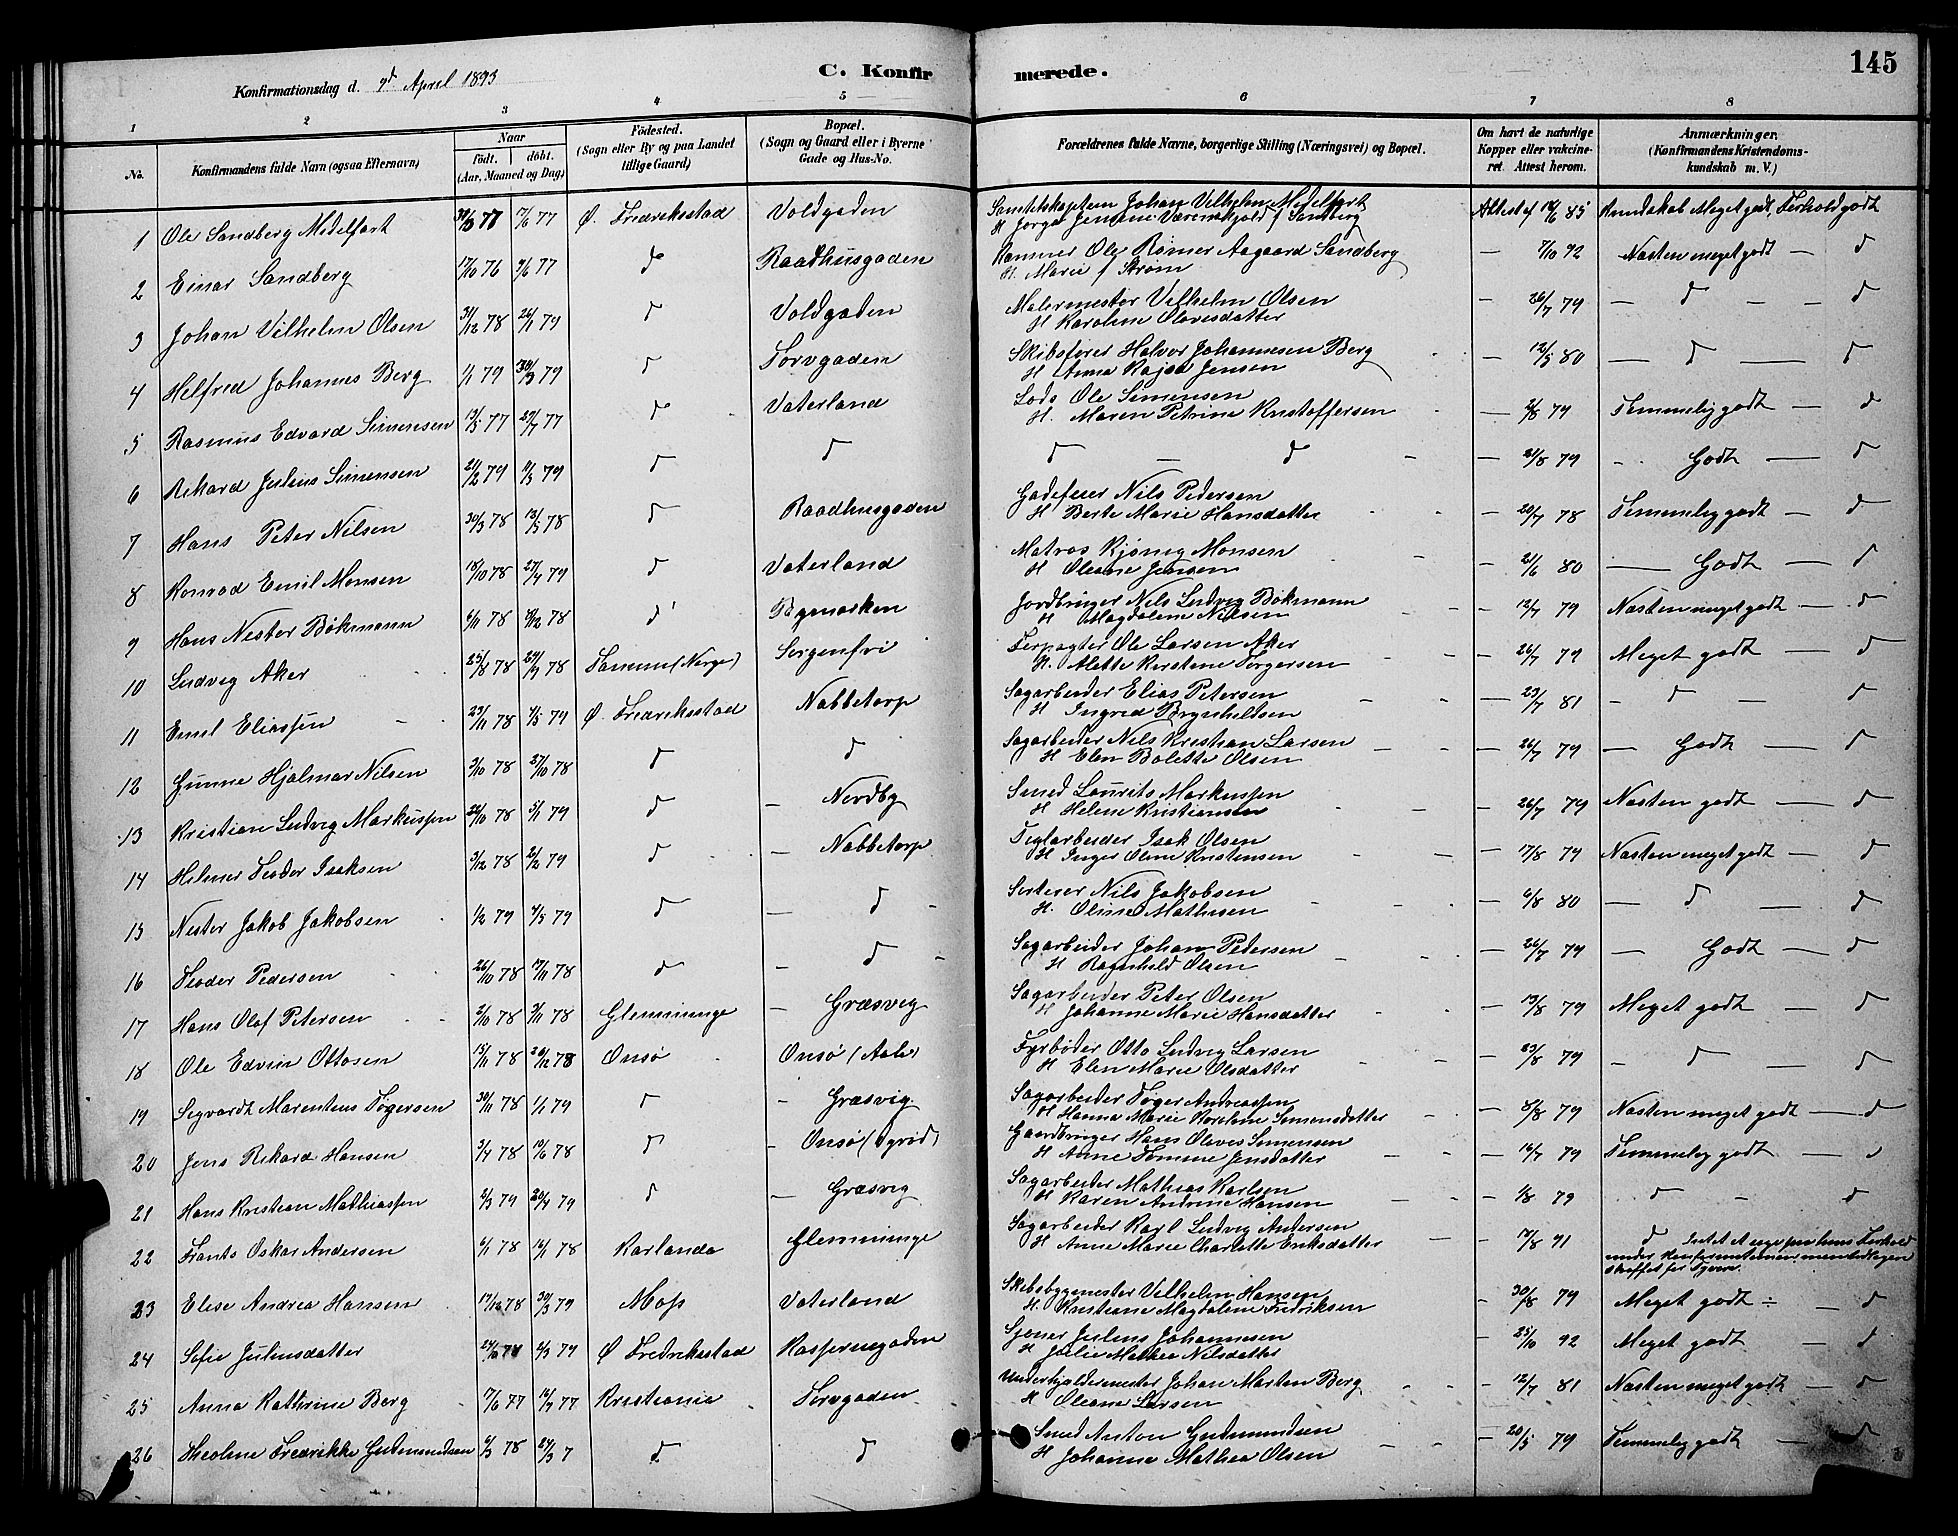 Konfirmationsdag d. 9d April 1893
C. Konfirmerede.
145
1 2 3 4 5 6 7 8
No.
Konfirmandens fulde Navn (ogsaa Efternavn)
Naar
födt. döbt.
(Aar, Maaned og Dag)
Födested.
(Sogn eller By og paa Landet
tillige Gaard)
Bopæl.
(Sogn og Gaard eller i Byerne
Gade og Hus-No.
Forældrenes fulde Navne, borgerlige Stilling (Næringsvei) og Bopæl.
Om havt de naturlige
Kopper eller vakcine-
ret. Attest herom.
Anmærkninger.
(Konfirmandens Kristendoms-
kundskab m. V.)
1 Ole Sandberg Midelfart 77 17/6 77 Ø. Fredrikstad Voldgaden Johan Vilhelm Midelfart Attest af 85 Kundskab Meget godt, Forhold godt
H Jørga Jensine Værenskjold f Sandberg
2 Einar Sandberg 17/10 76 77 do Raadhusgaden Ole Rømer Aagaard Sandberg — 7/10 92 Næsten meget godt — d
H. Marie f Strøm
3 Johan Vilhelm Olsen 31/12 78 26/1 79 d Voldgaden Malermester Vilhelm Olsen — 26/7 79 — d — — d
H Karoline Olavesdatter
4 Helfred Johannes Berg 1/1 79 30/3 79 d Torvgaden Skibsfører Halvor Johannesen Berg — 12/5 80 — d — d
H Anna Jensen
5 Rasmus Edvard Simensen 13/5 77 29/7 77 d Vaterland Lods Ole Simensen — 79 Temmelig godt — d
H. Maren Petrine Kristoffersen
6 Rikard Julius Simensen 21/2 79 11/5 79 d d d — d — — 21/8 79 — Godt — d
7 Hans Peter Nilsen 30/3 78 13/5 78 d Raadhusgaden Gadefeier Nils Pedersen — 20/7 78 Temmelig godt — d
H Berte Marie Hansdatter
8 Konrad Emil Monsen 18/10 78 27/4 79 d Vaterland Matros Monsen — 21/6 80 — Godt — d
H Oleane Jensen
9 Hans Nestor Bökmann 6/11 78 /12 78 d Bymarken Jordbruger Nils Ludvig Bökmann — 12/7 79 Næsten meget godt — d
H Magdalene Nilsen
10 Ludvig Aker 25/8 78 29/9 78 (Norge) Sorgenfri Forpagter Ole Larsen Aker — 26/7 79 Meget godt — d
H. Alette Kirstine Torgersen
11 Emil Eliassen 23/11 78 4/5 79 Ø. Fredrikstad Nabbetorp Sagarbeider Elias Petersen — 23/7 81 — d — d
H Ingrid Brynheldsen
12 Gunne Hjalmar Nilsen 3/10 78 27/10 78 d d Sagarbeider Nils Kristian Larsen — 26/7 79 — Godt — d
H Elen Bolette Olsen
13 Kristian Ludvig Markussen 22/10 78 5/1 79 d — Nordby Smed Laurits Markussen — 26/7 79 Næsten godt — d
H Helene Kristiansen
14 Hilmer Teodor Isaksen 3/12 78 2/2 79 d — Nabbetorp Teglarbeider Isak Olsen — 17/8 79 Næsten meget godt — d
H Inger Oline Kristensen
15 Nestor Jakob Jakobsen 1/2 79 4/5 79 d — d Nils Jakobsen — 6/8 80 — d — d
H. Oline Mathisen
16 Teodor Pedersen 26/10 78 17/11 78 d — d Sagarbeider Johan Pedersen — 26/7 79 — Godt — d
H Ragnhild Olsen
17 Hans Olaf Petersen 3/10 78 3/11 78 Glemminge — Græsvig Sagarbeider Peter Olsen — 13/8 79 Meget godt — d
H Johanne Marie Hansdatter
18 Ole Edvin Ottosen 15/11 78 26/12 78 Onsø Onsø (Aale) Fyrbøder Otto Ludvig Larsen — 23/8 79 — d d
H Elen Marie Olsdatter
19 Sigvardt Marentius Tøgersen 30/11 78 1/1 79 d — Græsvig Sagarbeider Tøger Andreassen — 8/8 79 Næsten meget godt — d
H Hanna Marie Karoline Simensdatter
20 Jens Rikard Hansen 3/4 78 10/6 78 d — Onsø Gaardbruger Hans Olaves Simensen — 16/7 79 Temmelig godt — d
H Anne Jensdatter
21 Hans Kristian Mathiassen 2/3 79 20/4 79 d — Græsvig Sagarbeider Mathias Karlsen — 1/8 79 d — d
H Karen Andrine Hansen
22 Frants Oskar Andersen 6/1 78 16/1 78 Karlanda Glemminge Sagarbeider Karl Ludvig Andersen — 17/8 91 d Forhold
H Anne Marie Charlotte Eriksdatter under Konfirmationen,
straffet for Tyveri
23 Elise Andrea Hansen 17/12 78 30/3 79 Moss Vaterland Skibsbygmester Vilhelm Hansen — 30/8 79 Meget godt — d
H. Kristiane Magdalene Fredriksen
24 Sofie Juliusdatter 79 Ø Fredrikstad Kasernegaden Julius Johannesen — 25/10 92 Meget godt — d
H Julie Mathea Nilsdatter
25 Anna Kathrine Berg 17/6 77 16/9 77 Kristiania Torvgaden Johan Morten Berg — 12/7 81 Næsten meget godt — d
H Oleane Larsen
26 Theoline Fredrikke Gudmundsen 6/3 78 24/3 7 d d Smed Anton Gudmundsen — 20/5 79 Temmelig godt — d
H Johanne Mathea Olsen